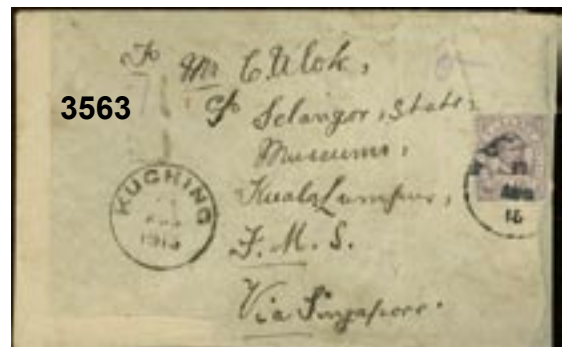 To
Mr C. Ulok,
c/o
3563
Selangor, State,
Museums,
Kuala Lumpur,
F. M. S.
Via Singapore.
KUCHING
1915
15